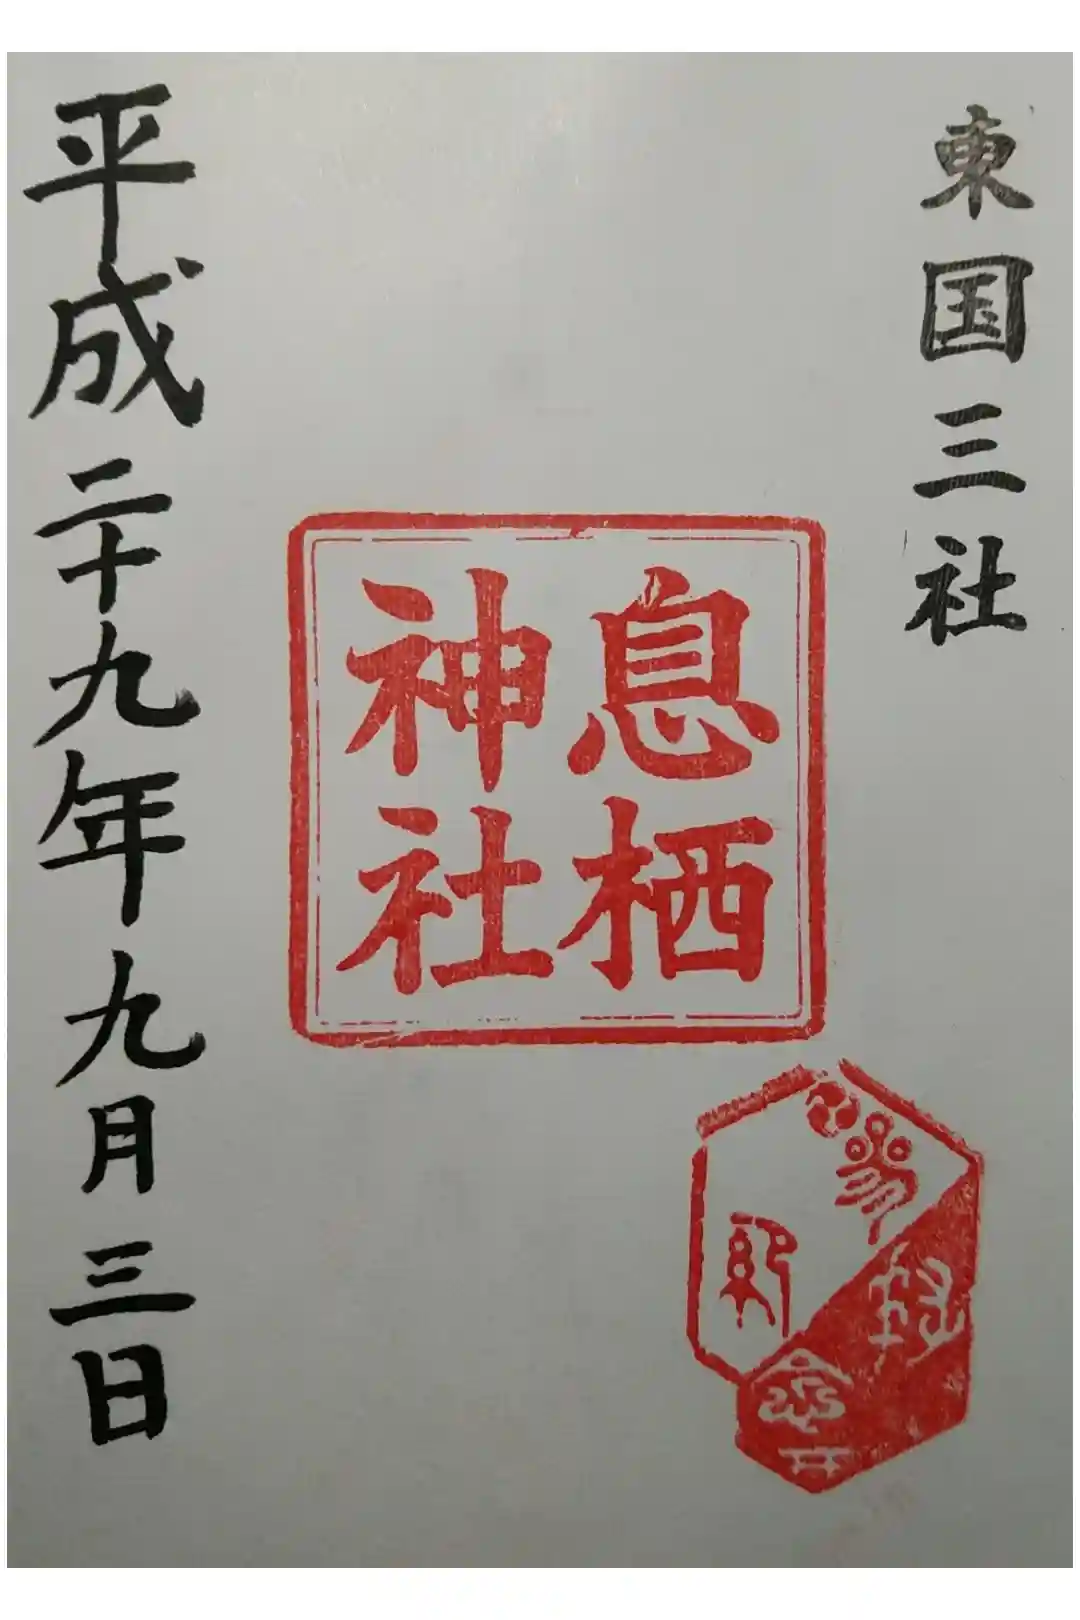 東国三社
息栖
神社
平成二十九年九月三日